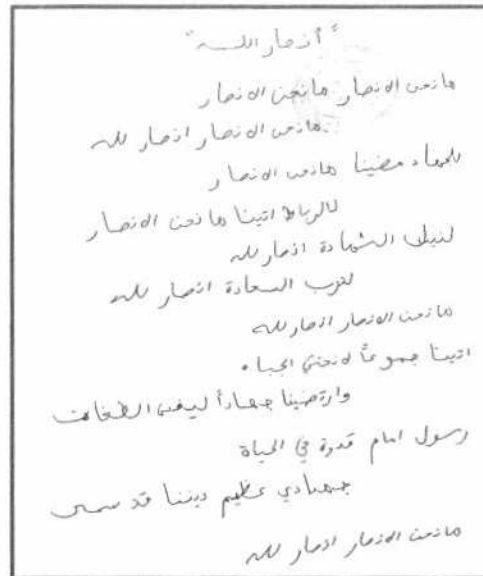 "أنصار الله"
ها نحن الانصار ها نحن الانصار
ها نحن الانصار انصار لله
للجهاد مضينا ها نحن الانصار
للرباط اتينا ها نحن الانصار
لنيل الشهادة انصار لله
لدرب السعادة انصار لله
ها نحن الانصار انصار لله
اتينا جموعاً لا نحني الجباه
وارتضينا جهاداً ليفنى الطغاة
رسول امام قدوة في الحياة
جهادي عظيم ديننا قد سمى
ها نحن الانصار انصار لله